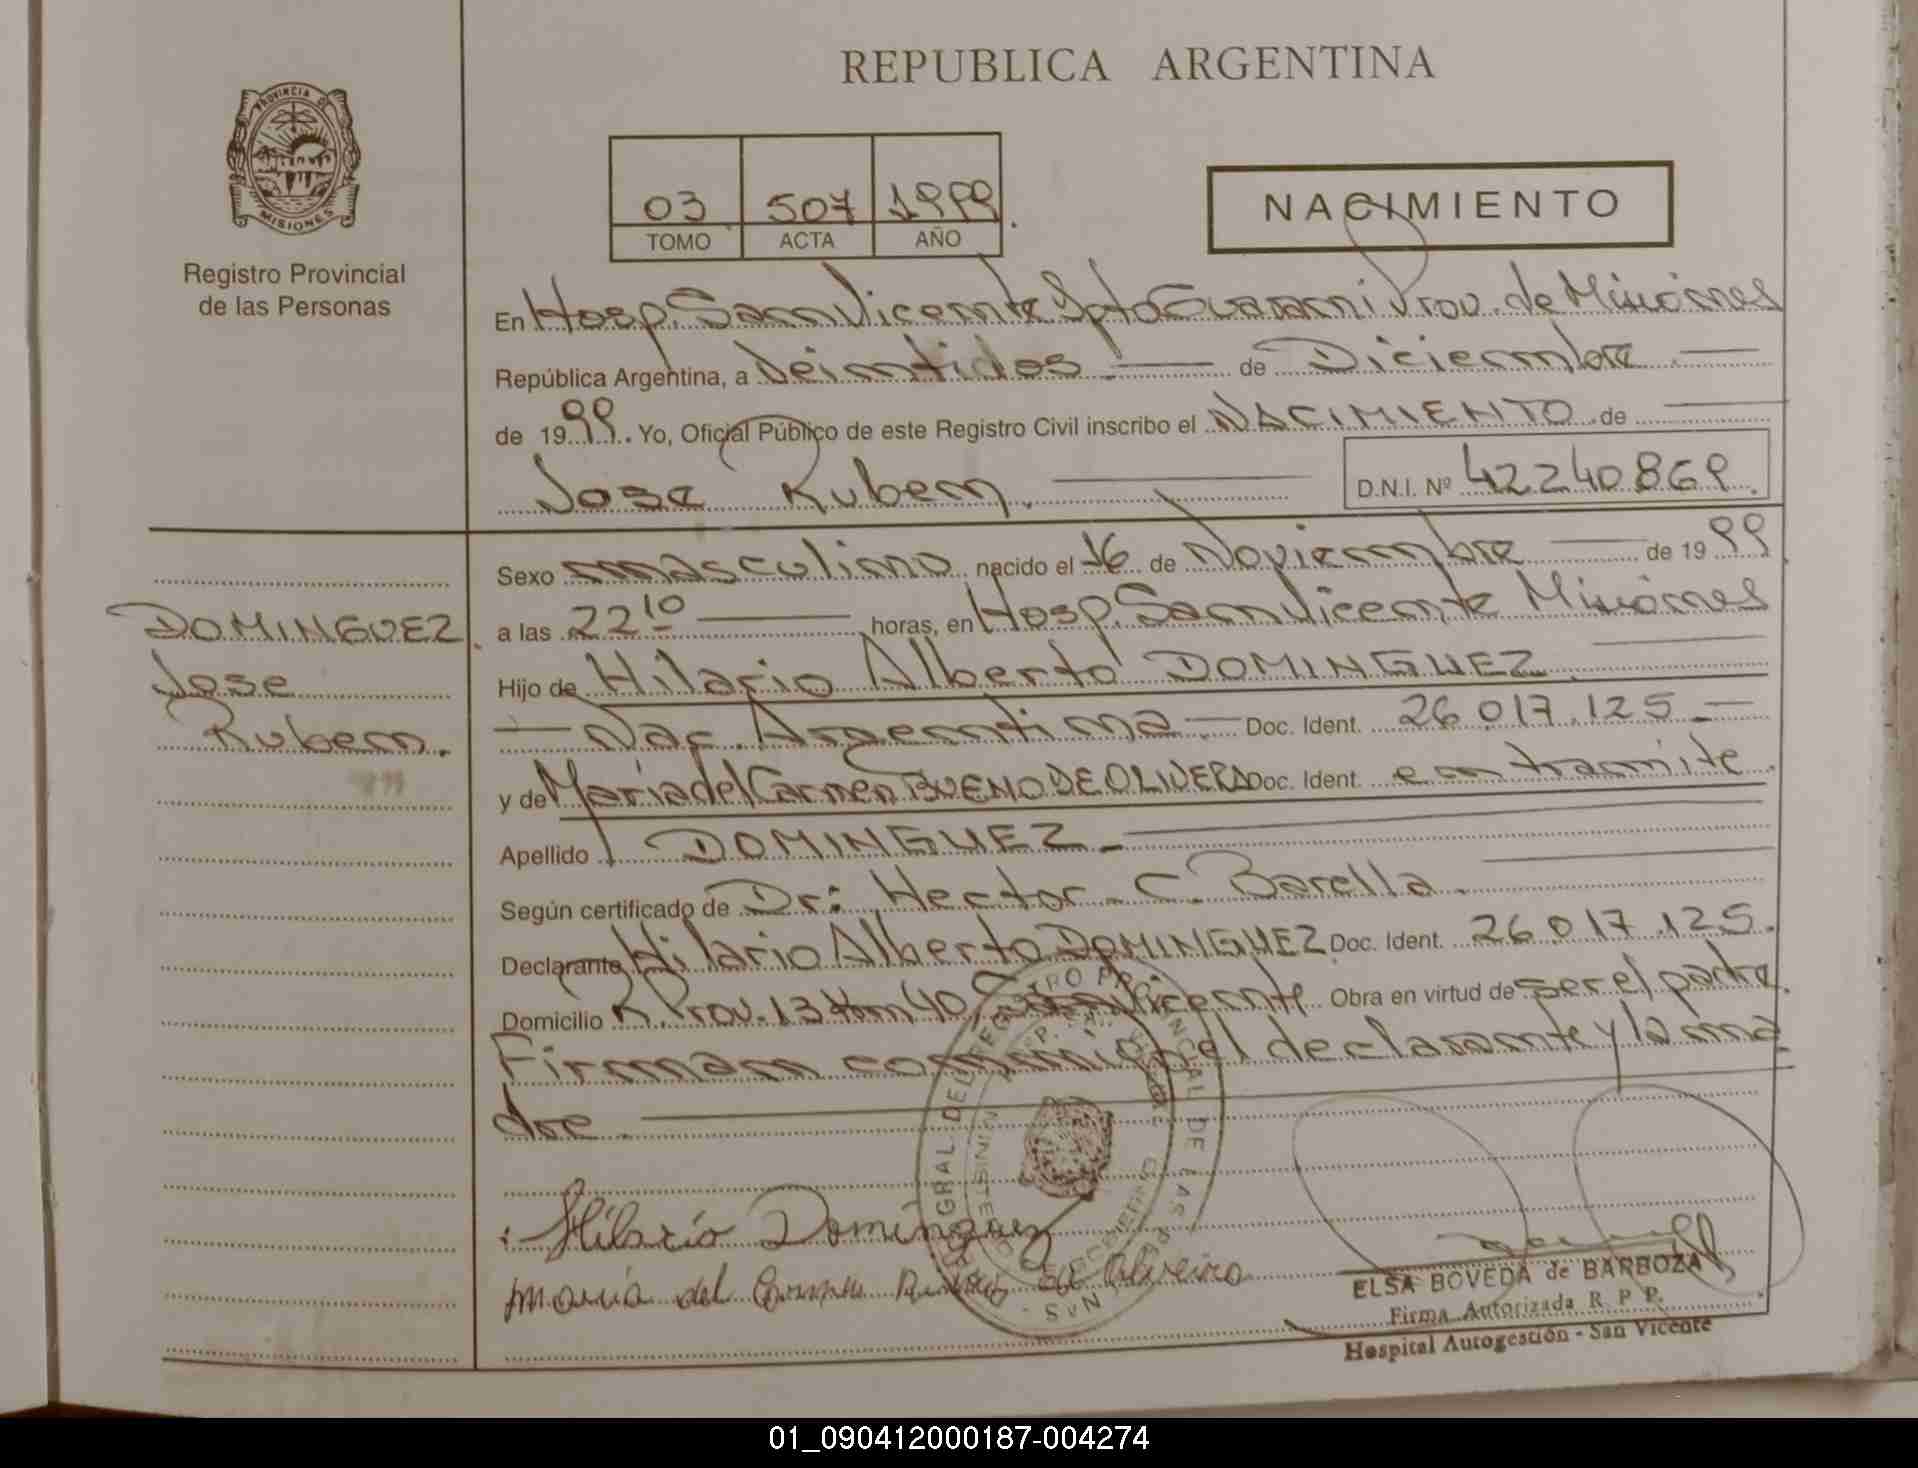 REPUBLICA ARGENTINA
PROVINCIA DE
MISIONES
Registro Provincial
de las Personas
03 507 1999
TOMO ACTA AÑO
NACIMIENTO
En Hosp. San Vicente Dpto Guarani Prov. de Misiones
República Argentina, a Veintidos de Diciembre
de 1999. Yo, Oficial Público de este Registro Civil inscribo el NACIMIENTO de
Jose Ruben. D.N.I. Nº 42240869.
Sexo masculino nacido el 16 de Noviembre de 1999
DOMINGUEZ
a las 22 10 horas, en Hosp. San Vicente Misiones
Jose
Hijo de Hilario Alberto DOMINGUEZ
Ruben.
Nac. Argentina Doc. Ident. 26.017.125
y de Maria del Carmen BUENO DE OLIVERA Doc. Ident. en tramite
Apellido DOMINGUEZ
Según certificado de Dr: Hector C. Barella.
Declarante Hilario Alberto DOMINGUEZ Doc. Ident. 26.017.125.
Domicilio R. Prov. 13 Km 40, San Vicente Obra en virtud de ser el padre.
Firman conmigo el declarante y la ma
dre.
Hilario Dominguez
Maria del Carmen de Oliveira
ELSA BOVEDA de BARBOZA
Firma Autorizada R. P. P.
Hospital Autogestión - San Vicente
01_090412000187-004274